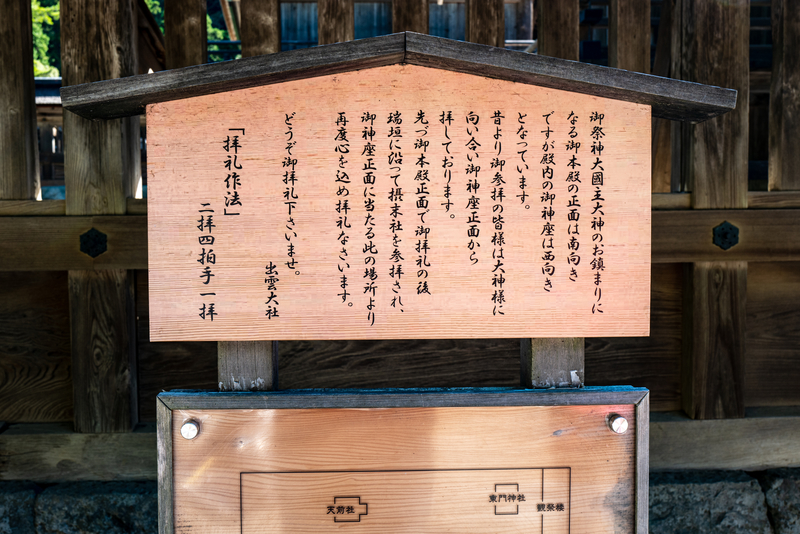 御祭神大國主大神のお鎮まりに
なる御本殿の正面は南向き
ですが殿内の御神座は西向き
となっています。
昔より御参拝の皆様は大神様に
向い合い御神座正面から
拝しております。
先づ御本殿正面で御拝礼の後
瑞垣に沿って摂末社を参拝され、
御神座正面に当たる此の場所より
再度心を込め拝礼なさいます。
どうぞ御拝礼下さいませ。
出雲大社
「拝礼作法」
二拝四拍手一拝
天前社
東門神社
観祭楼